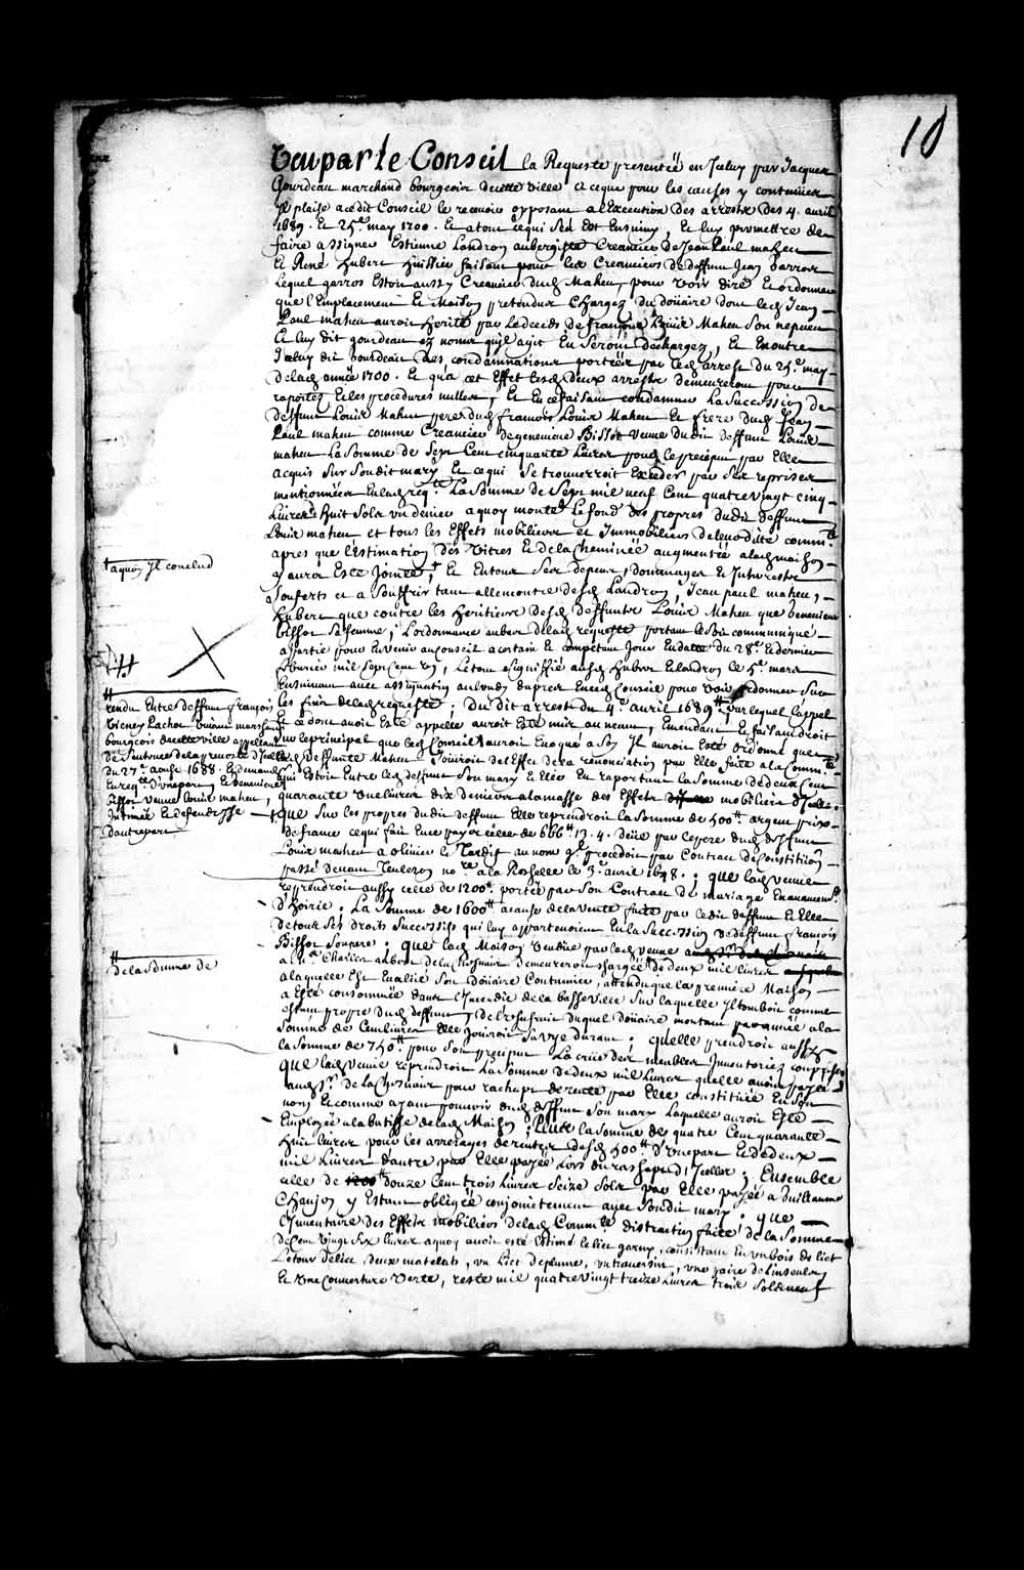 10
Veu par le Conseil la Requeste presentée en Iceluy par Jacques
Gourdeau marchand bourgeois de cette ville a ce que pour les causes y contenües
Il plaise audit Conseil le recevoir opposant a l'Execution des arrests des 4. avril
1689. Et 25e. may 1700. Et a tout ce qui s'est Ensuivy, Et luy permettre de
faire assigner Estienne Landron aubergiste Creancier de Jean Paul maheu
Et René hubert huissier faisant pour les Creanciers de deffunt Jean Garros
Lequel garros Estoit aussy Creancier dud. Maheu, pour voir dire Et ordonner
que l'Emplacement Et Maison pretendus Chargez du doüaire dont led. Jean
Paul maheu auroit herité par le deceds de françois Loüis Maheu Son nepveu
Et luy dit gourdeau ez noms qu'il agit En Seront dechargez, Et En outre
Iceluy dit Gourdeau des condamnations portées par led. arrest du 25e. may
de lad. année 1700. Et qu'a cet Effet lesd. deux arrests demeureront pour
raportez Et les procedures nulles, Et En ce faisant condamner La Succession de
deffunt Loüis Maheu pere dud. francois Loüis Maheu Et frere dud. Jean
Paul maheu comme Creancier de genevieve Bissot veuve dudit deffunt Loüis
maheu La Somme de Sept Cent cinquante Livres pour le preciput par Elle
acquis Sur Son dit mary Et ce qui Se trouverroit Exceder par Ses reprises
mentionnées En lad. reqte. La Somme de Sept mil neuf Cent quatre vingt cinq
Livres huit Sols un denier a quoy monte le fond des propres dudit deffunt
Loüis maheu et tous les Effets mobiliers et Immobiliers de lad. dite commté.
apres que l'estimation des Vitres Et de la Cheminée augmentée a lad. maison
y aura Esté Jointe, † Et En tous Ses depens, dommages Et Interests
Soufferts et a Souffrir tant allencontre desd. Landron, Jean paul maheu,
hubert que contre les heritiers desd. deffunts Loüis Maheu que Genevieve
bissot Sa femme; L'ordonnance au bas de lad. requeste portant Soit communiqué
a partie pour En venir au conseil a certain Et competant Jour En datte du 28e. Et dernier
febvrier mil Sept Cent un, Le tout Signiffié ausd. hubert Et Landron le 5e. mars
Ensuivant avec assignation au lundy d'apres En ced. Conseil pour voir ordonner Sur
les fins de lad. requeste; Du dit arrest du 4e. avril 1689 # par lequel l'appel
Et ce dont avoit Esté appellé auroit Esté mis au neant, Emendant Et faisant droit
Sur le principal que led. Conseil auroit Evoqué a Soy Il auroit Esté ordonné que
lad. deffunte Maheu Joüiroit de l'Effet de sa renonciation par Elle faite a la Commté.
qui Estoit Entre led. deffunt Son mary Et Elle En raportant la Somme de deux Cent
quarante une livres dix deniers a la masse des Effets mobiliers d'Icelle.
que Sur les propres dudit deffunt Elle reprendroit la Somme de 500tt argent prix
de france ce qui fait En ce pays celle de 666tt 13. 4. Deüe par le pere dud. deffunt
Loüis maheu a olivier le Tardif au nom ql. procedoit par Contract de constitution
passé devant Teuleron nore. a la Rochelle le 3e. avril 1648. : que lad. veuve
reprendroit aussy celle de 1200tt. portée par Son Contract de mariage En avancemt.
d'hoirie. La Somme de 1600tt a cause de la vente faite par ledit deffunt Et Elle
de tous Ses droits Successifs qui luy appartenoient En la Succession de deffunt françois
Bissot Son pere: que lad. Maison vendüe par lad. veuve
au Sr. Charles aubert de la Chesnaie demeureroit chargée # de deux mil livres
a laquelle Est Evalüé Son doüaire Coutumier, attendu que la premiere Maison
a Esté consommée dans l'Incendie de la basse ville Sur laquelle Il tomboit comme
Estant propre dud. deffunt, de l'usufruit duquel doüaire montant par année a la
Somme de Cent livres Elle Joüiroit Sa vye durant: qu'elle prendroit aussy
la Somme de 750tt pour Son preciput La criie des meubles Inventoriez comprise
que lad. veuve reprendroit La Somme de deux mil Livres qu'elle avoit payée
aud. Sr. de la Chesnaie pour rachapt de rente par Elle constituée En Son
nom Et comme ayant pouvoir dud. deffunt Son mary Laquelle auroit Esté
Employée a la batisse de lad. Maison; Plus la Somme de quatre Cent quarante
huit livres pour les arrerages de rentes desd. 500tt d'Une part Et de deux
mil Livres d'autre par Elle payée Lors du rachapt d'Icelles; Ensemble
celle de 1200tt douze Cent trois Livres Seize Sols par Elle payée a Guillaume
Chanjon y Estant obligée conjointement avec Son dit mary: que
l'Inventaire des Effets mobiliers de lad. Commté. distraction faite de la Somme
de Cent vingt Six livres a quoy avoit esté Estimé le lict garny, consistant En un bois de lict
Le tour d'elict, deux matelats, un lict de plume, un traversin, une paire de linceuls
Et une couverture Verte, reste mil quatre vingt treize Livres trois Sols neuf
† a quoy Il conclud
#
# rendu Entre deffunt françois
Vieney Pachot vivant marchand
bourgeois de cette ville appellant
de Sentence de la prevosté d'Icelle
du 27e. aoust 1688. Et demandeur
En reqte. d'Une part, Et Genevieve
Bissot veuve Loüis maheu,
Intimée Et defenderesse
d'autre part
# de la Somme de